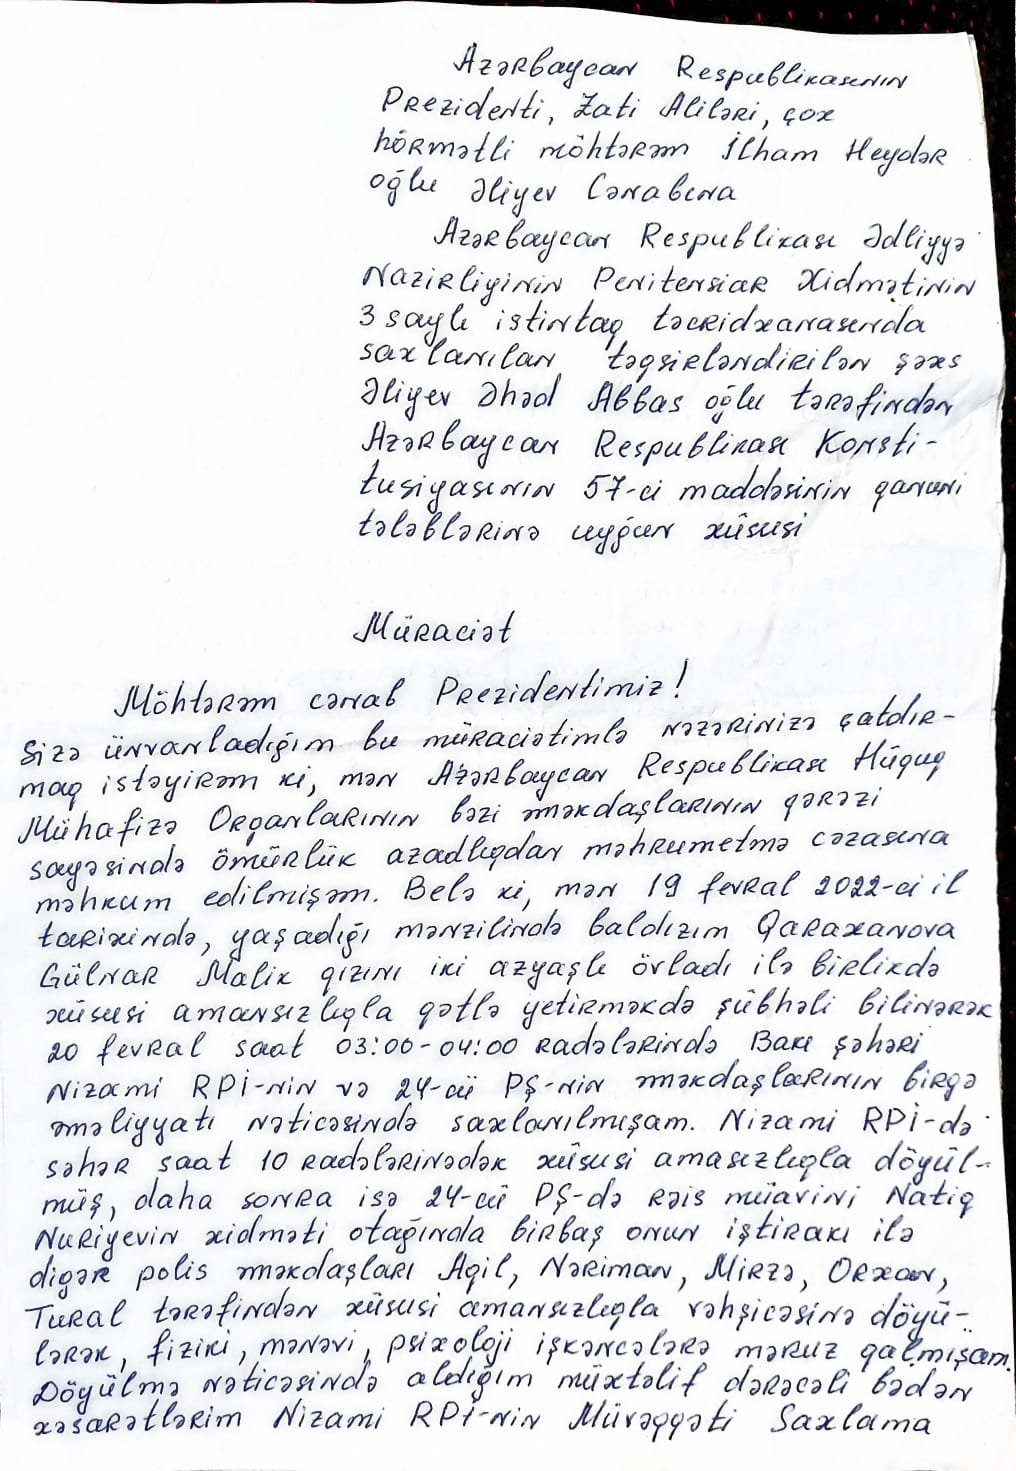 Azərbaycan Respublikasının
Prezidenti, Zati Aliləri, çox
hörmətli möhtərəm İlham Heydər
oğlu Əliyev Cənabına
Azərbaycan Respublikası Ədliyyə
Nazirliyinin Penitensiar Xidmətinin
3 saylı istintaq təcridxanasında
saxlanılan təqsirləndirilən şəxs
Əliyev Əhəd Abbas oğlu tərəfindən
Azərbaycan Respublikası Konsti-
tusiyasının 57-ci maddəsinin qanuni
tələblərinə uyğun xüsusi
Müraciət
Möhtərəm cənab Prezidentimiz!
Sizə ünvanladığım bu müraciətimlə nəzərinizə çatdır-
maq istəyirəm ki, mən Azərbaycan Respublikası Hüquq
Mühafizə Orqanlarının bəzi əməkdaşlarının qərəzi
sayəsində ömürlük azadlıqdan məhrumetmə cəzasına
məhkum edilmişəm. Belə ki, mən 19 fevral 2022-ci il
tarixində, yaşadığı mənzilində baldızım Qaraxanova
Gülnar Malik qızını iki azyaşlı övladı ilə birlikdə
xüsusi amansızlıqla qətlə yetirməkdə şübhəli bilinərək
20 fevral saat 03:00-04:00 radələrində Bakı şəhəri
Nizami RPİ-nin və 24-cü PŞ-nin əməkdaşlarının birgə
əməliyyatı nəticəsində saxlanılmışam. Nizami RPİ-də
səhər saat 10 radələrinədək xüsusi amasızlıqla döyül-
müş, daha sonra isə 24-cü PŞ-də rəis müavini Natiq
Nuriyevin xidməti otağında birbaş onun iştirakı ilə
digər polis əməkdaşları Aqil, Nəriman, Mirzə, Orxan,
Tural tərəfindən xüsusi amansızlıqla vəhşicəsinə döyü-
lərək, fiziki, mənəvi, psixoloji işkəncələrə məruz qalmışam.
Döyülmə nəticəsində aldığım müxtəlif dərəcəli bədən
xəsarətlərim Nizami RPİ-nin Müvəqqəti Saxlama